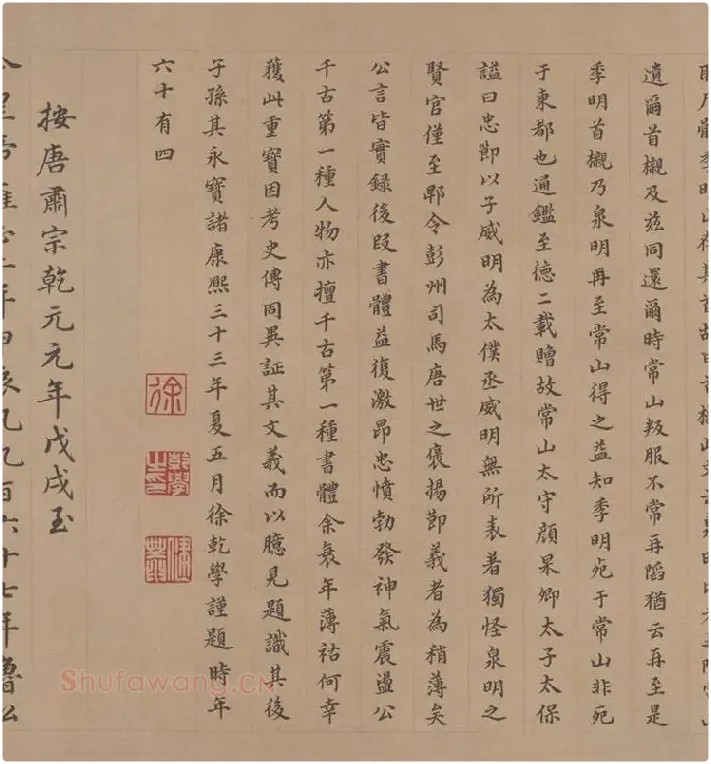 遺爾首櫬及茲同還爾時常山叛服不常再䧟猶云再至是
季明首櫬乃泉明再至常山得之益知季明死于常山非死
于東都也通鑑至德二載贈故常山太守顔杲卿太子太保
謚曰忠節以子威明為太僕丞威明無所表著獨怪泉明之
賢官僅至郫令彭州司馬唐世之褒揚節義者為稍薄矣
公言皆實錄後段書體益復激昂忠憤勃發神氣震盪公
千古第一種人物亦擅千古第一種書體余衰年薄祜何幸
獲此重寶因考史傳同異証其文義而以臆見題識其後
子孫其永寶諸康熙三十三年夏五月徐乾學謹題時年
六十有四
徐
乾學之印
按唐肅宗乾元元年戊戌至
百六十七年魯公
Shufawang.CN